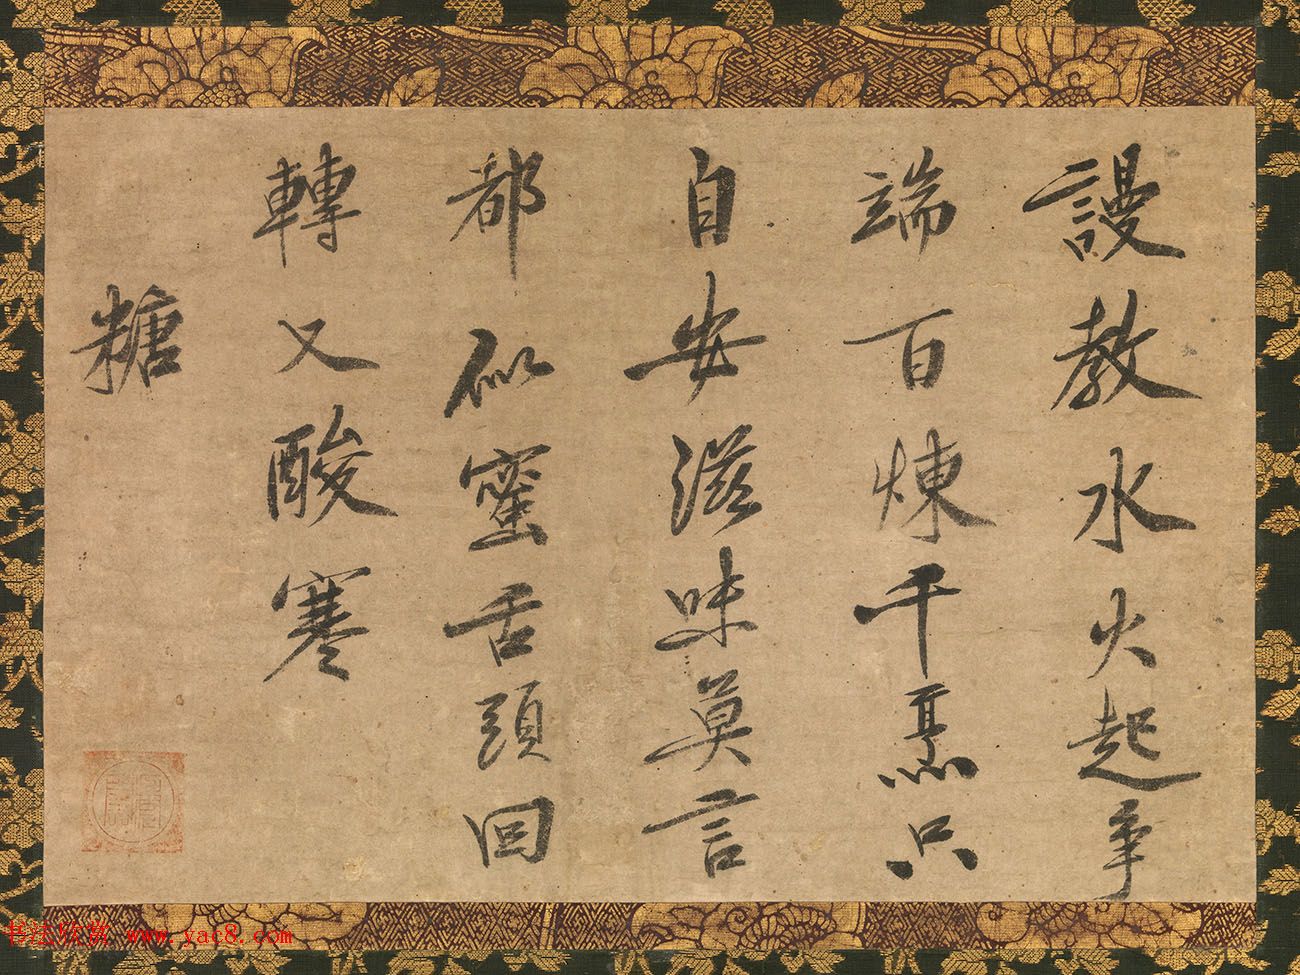 謾教水火起争
端百煉千烹只
自安滋味莫言
都似蜜舌頭回
轉又酸寒
糖
书法欣赏 www.yac8.com